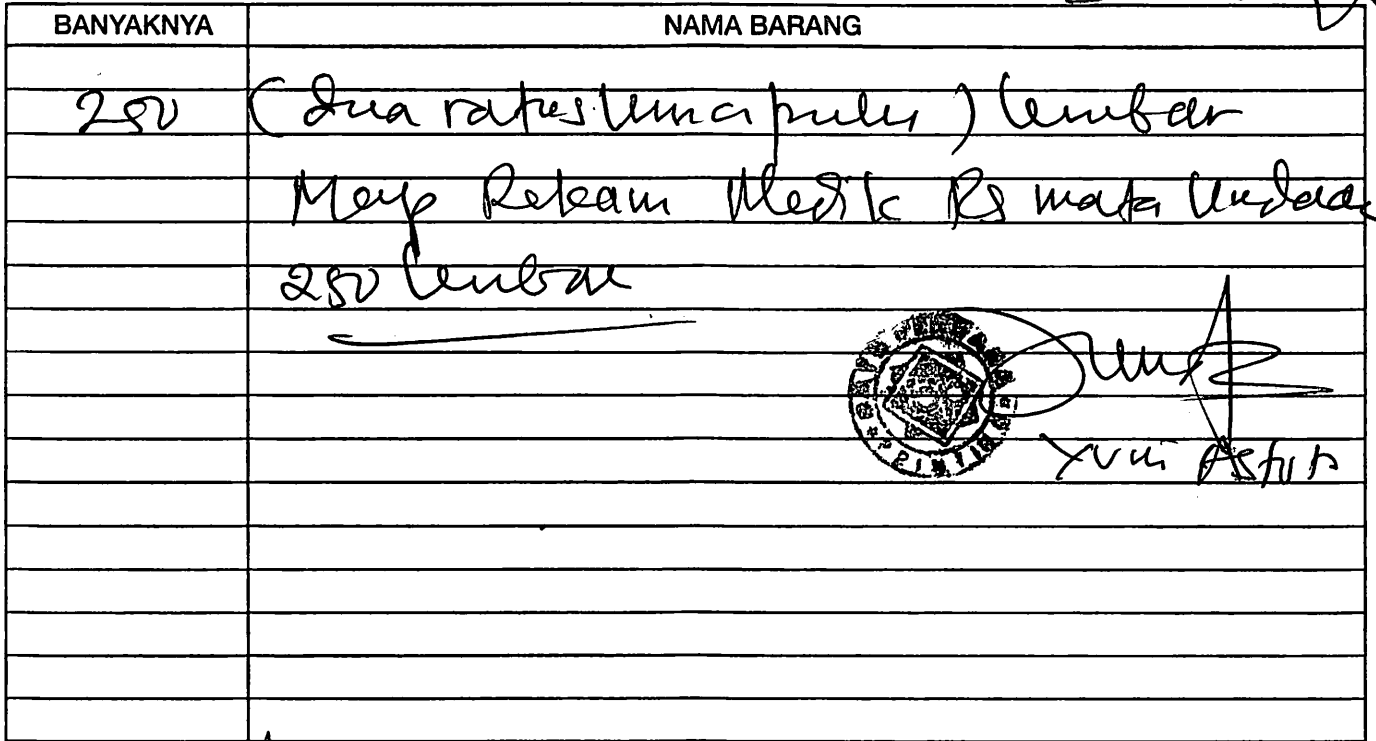 BANYAKNYA NAMA BARANG
250 (dua ratus lima puluh) lembar
Map Rekam Medik RS Mata Undaan
250 lembar
PRINTING
Yuni Astuti